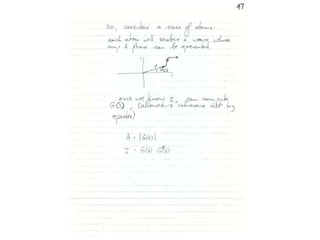 47
so, consider a row of atoms:
each atom will scatter a wave whose
amp & phase can be represented
once we know r, can compute
G(s), (allowed s values set by
A = |G(s)|
I = G(s) G*(s)